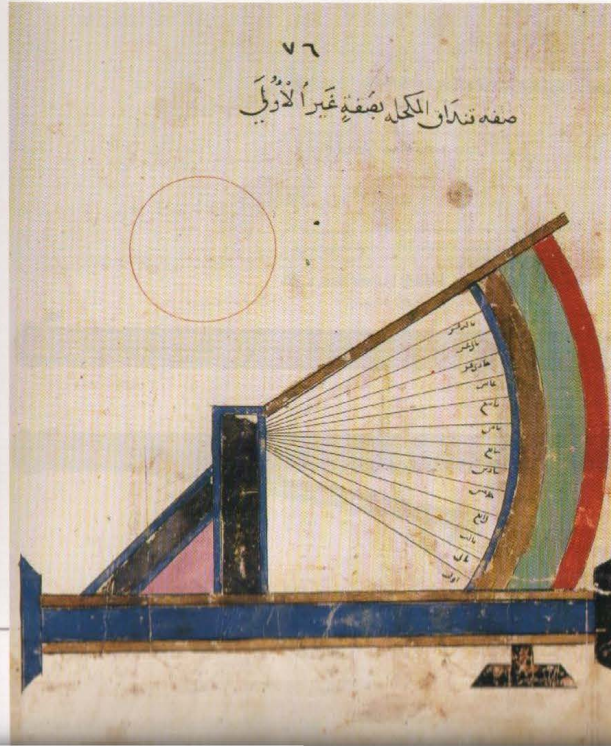 ٧٦
صفه قنداق المكحله بصفةٍ غير الأولى
ثالث عشر
ثاني عشر
حادي عشر
عاشر
تاسع
ثامن
سابع
سادس
خامس
رابع
ثالث
ثاني
اول